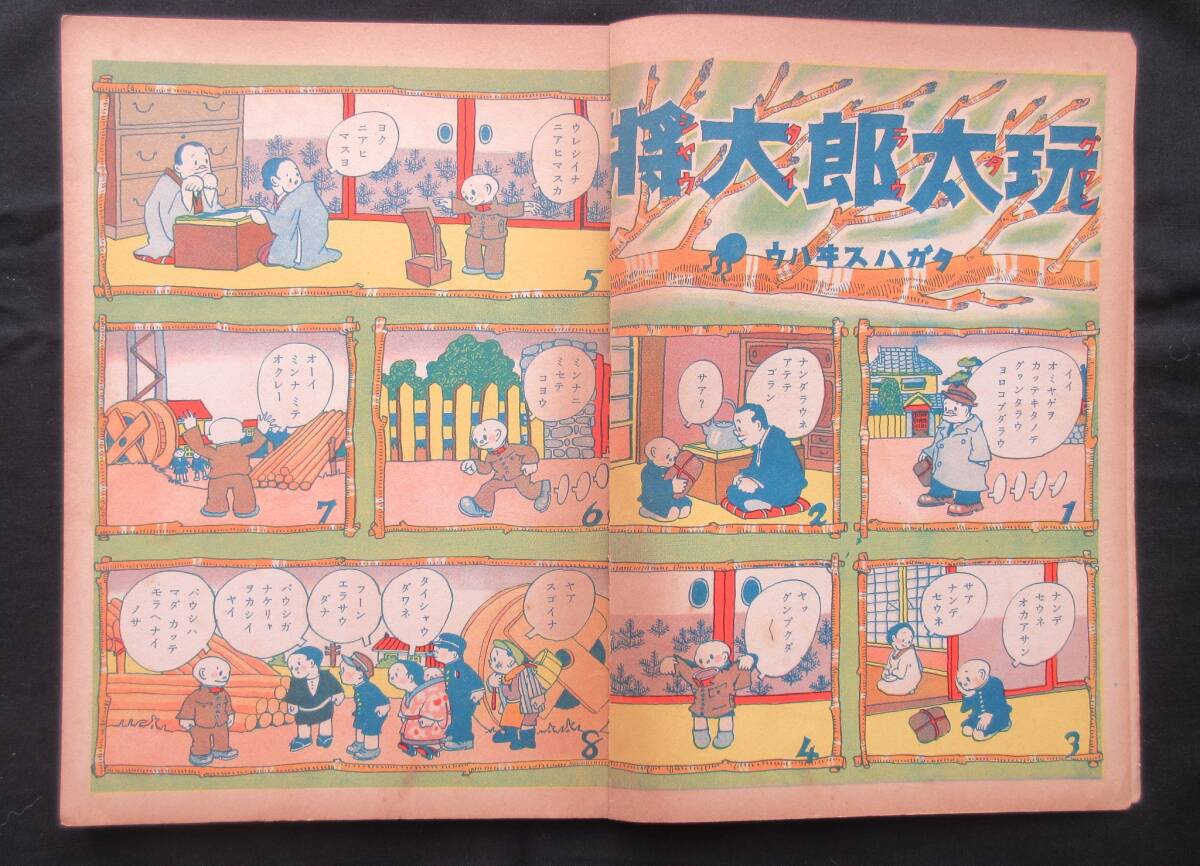 玩太郎大将
グワンタラウタイシヤウ
タガハスヰハウ
イイ
オミヤゲヲ
カッテキタノデ
グヮンタラウ
ヨロコブダラウ
1
ナンダラウネ
アテテ
ゴラン
サア?
2
ナンデ
セウネ
オカアサン
サア
ナンデ
セウネ
3
ヤッ
グンプクダ
〱
4
ウレシイナ
ニアヒマスカ
ヨク
ニアヒ
マスヨ
5
ミンナニ
ミセテ
コヨウ
6
オーイ
ミンナミテ
オクレー
7
ヤア
スゴイナ
タイシャウ
ダワネ
フーン
エラサウ
ダナ
バウシガ
ナケリャ
ヲカシイ
ヤイ
バウシハ
マダカッテ
モラヘナイ
ノサ
8